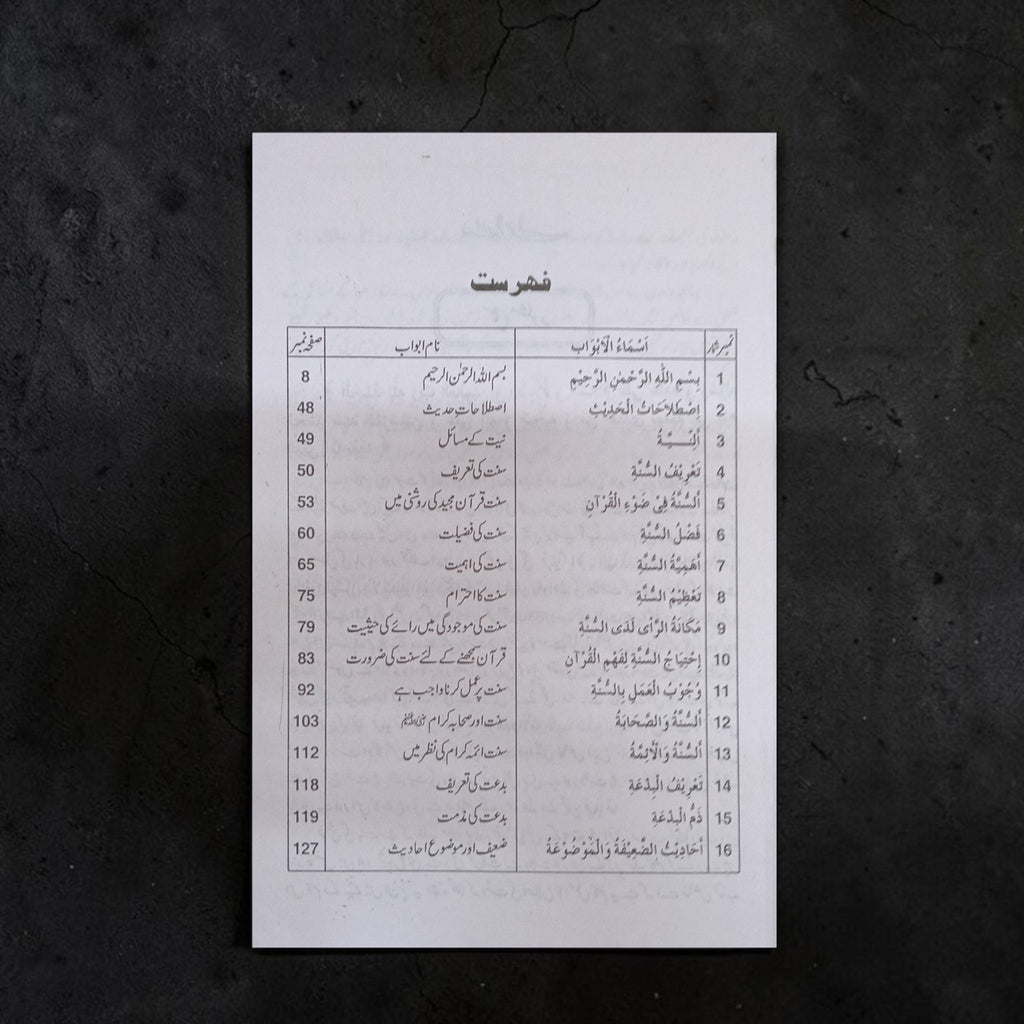 فهرست
نمبر شمار اَسْمَاءُ الْاَبْوَابِ نام ابواب صفحہ نمبر
1 بِسْمِ اللّٰهِ الرَّحْمٰنِ الرَّحِيْمِ بسم اللہ الرحمٰن الرحیم 8
2 اِصْطَلاَحَاتُ الْحَدِيْثِ اصطلاحاتِ حدیث 48
3 اَلنِّـــيَّــةُ نیت کے مسائل 49
4 تَعْرِيْفُ السُّنَّةِ سنت کی تعریف 50
5 اَلسُّنَّةُ فِىْ ضَوْءِ الْقُرْآنِ سنت قرآن مجید کی روشنی میں 53
6 فَضْلُ السُّنَّةِ سنت کی فضیلت 60
7 اَهَمِيَّةُ السُّنَّةِ سنت کی اہمیت 65
8 تَعْظِيْمُ السُّنَّةِ سنت کا احترام 75
9 مَكَانَةُ الرَّاْىِ لَدَى السُّنَّةِ سنت کی موجودگی میں رائے کی حیثیت 79
10 اِحْتِيَاجُ السُّنَّةِ لِفَهْمِ الْقُرْآنِ قرآن سمجھنے کے لئے سنت کی ضرورت 83
11 وُجُوْبُ الْعَمَلِ بِالسُّنَّةِ سنت پر عمل کرنا واجب ہے 92
12 اَلسُّنَّةُ وَالصَّحَابَةُ سنت اور صحابہ کرام 103
13 اَلسُّنَّةُ وَالْاَئِمَّةُ سنت ائمہ کرام کی نظر میں 112
14 تَعْرِيْفُ الْبِدْعَةِ بدعت کی تعریف 118
15 ذَمُّ الْبِدْعَةِ بدعت کی مذمت 119
16 اَحَادِيْثُ الضَّعِيْفَةُ وَالْمَوْضُوْعَةُ ضعیف اور موضوع احادیث 127